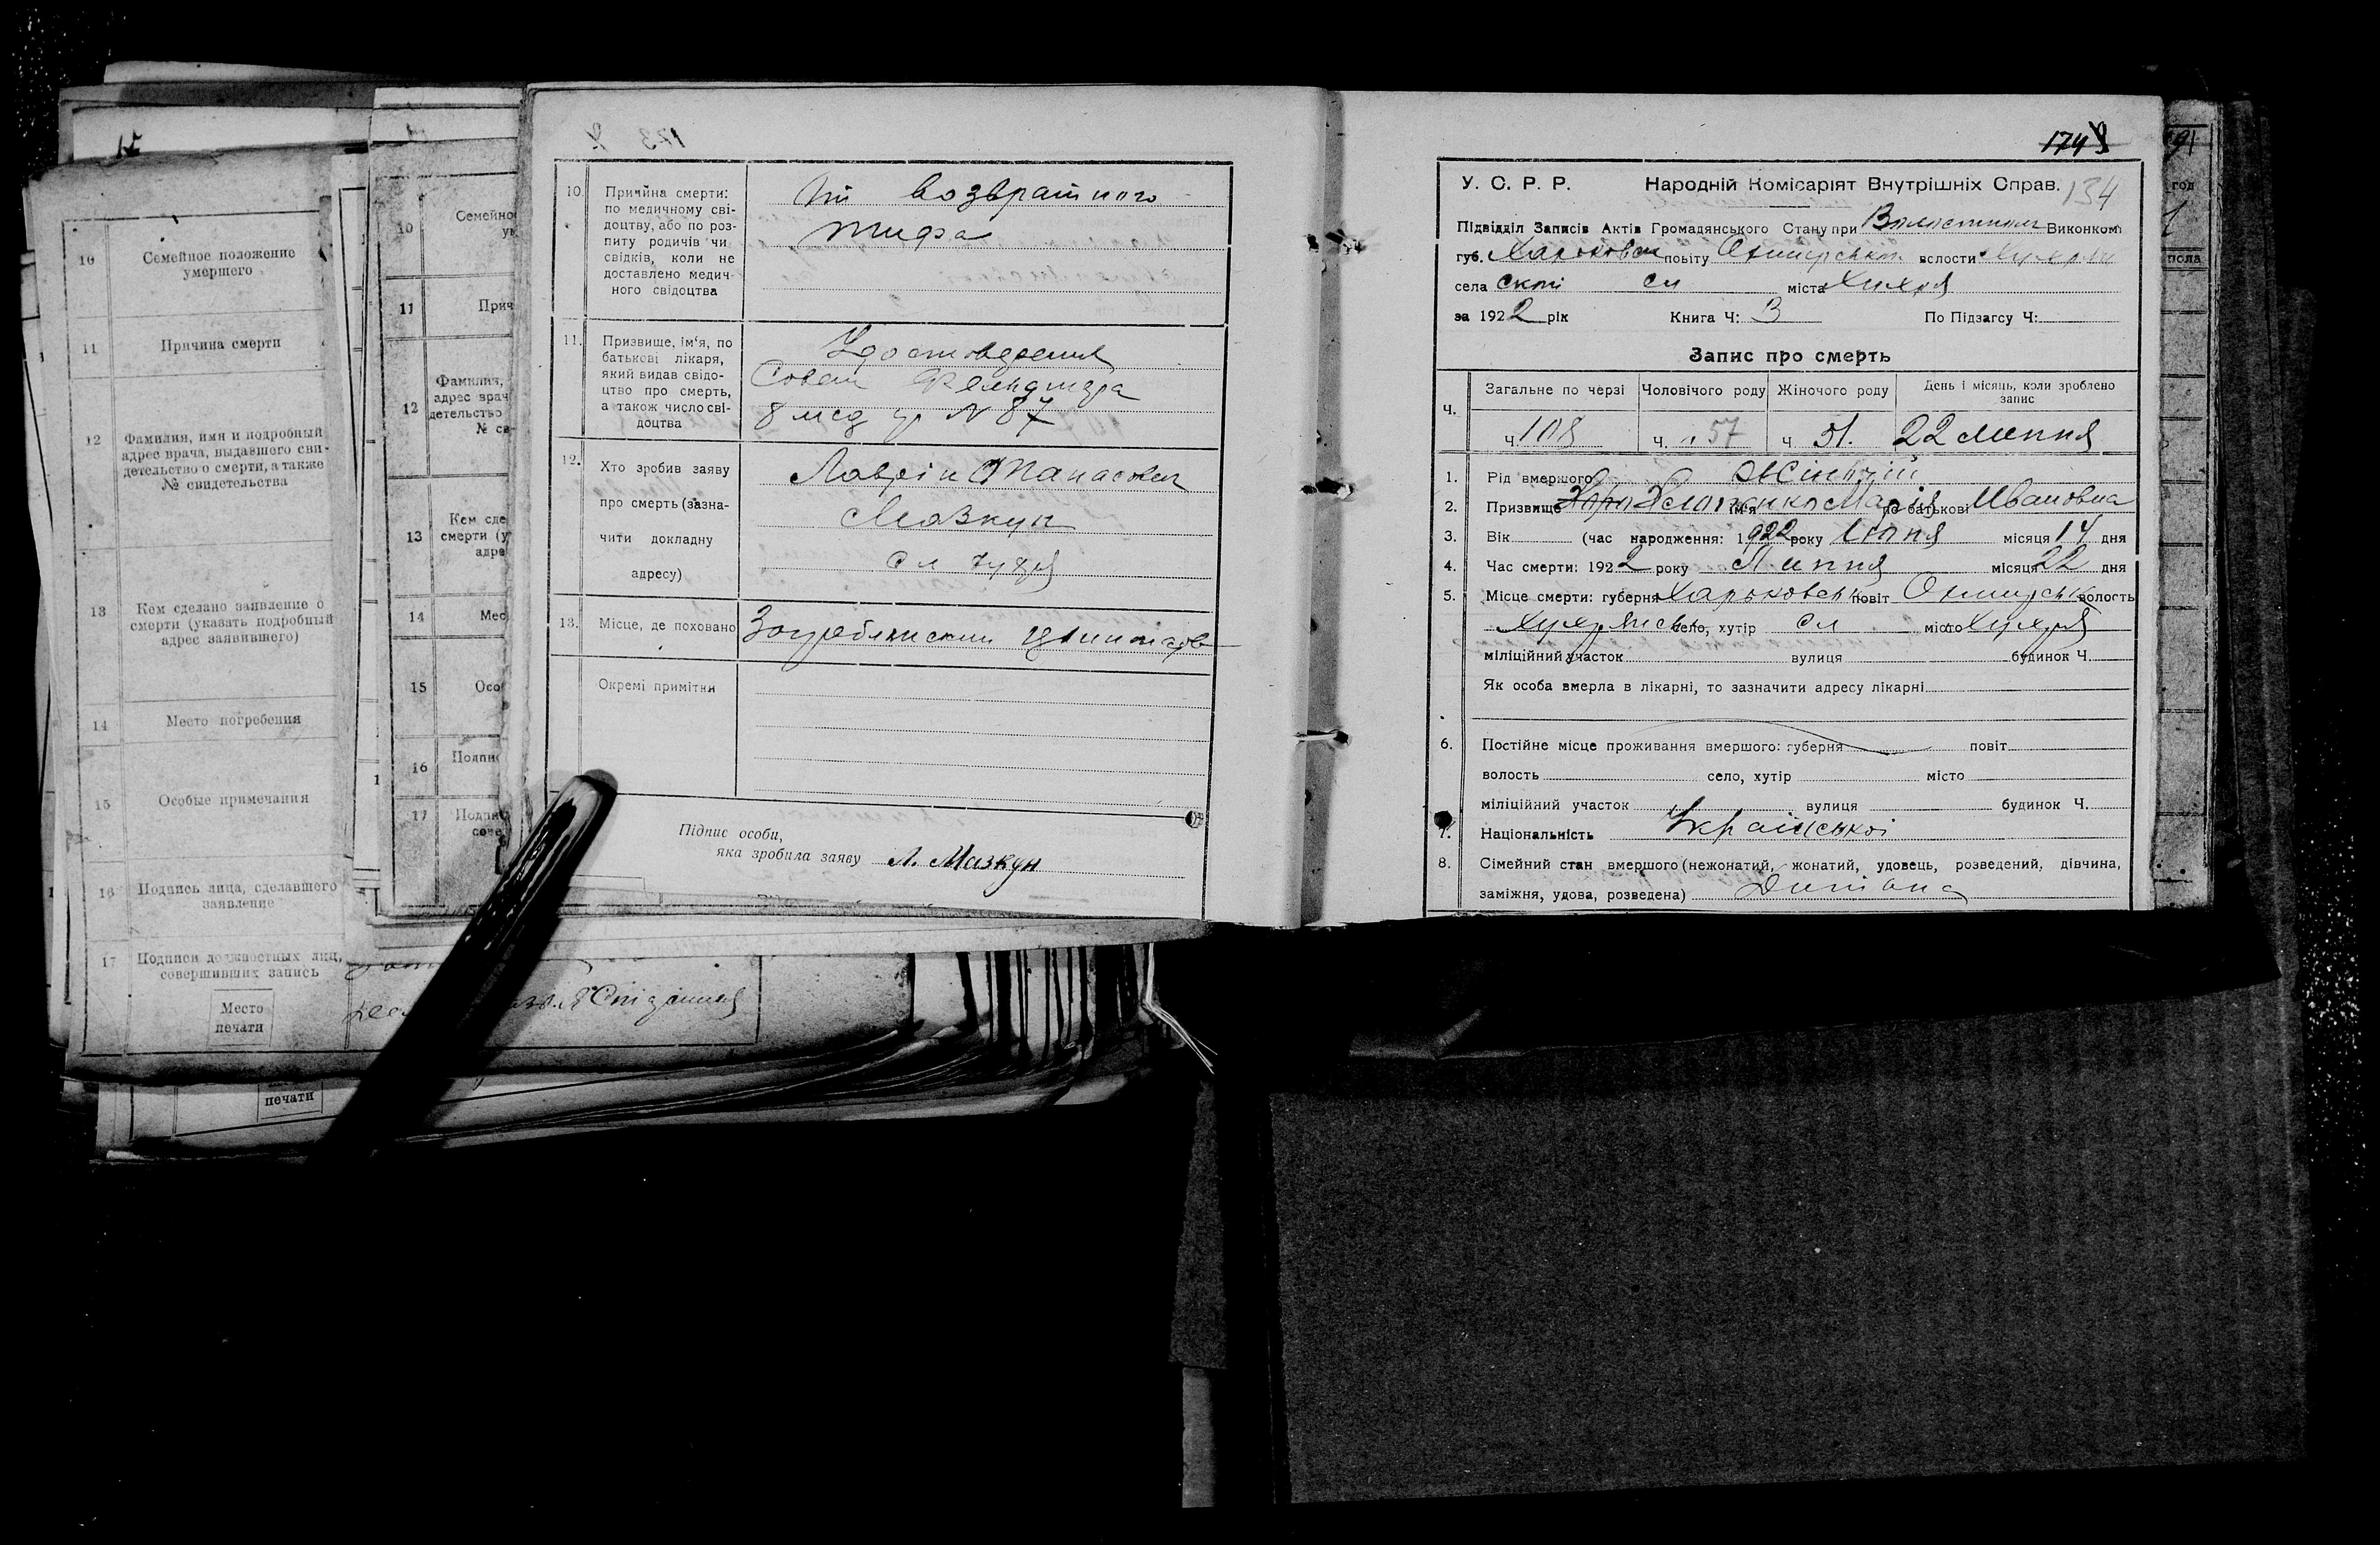 10
Семейное положение
умершего
11
Причина смерти
12
Фамилия, имя и подробный
адрес врача, выдавшего сви-
детельство о смерти, а также
№ свидетельства
13
Кем сделано заявление о
смерти (указать подробный
адрес заявившего)
14
Место погребения
15
Особые примечания
16
Подпись лица, сделавшего
заявление
17
Подписи должностных лиц,
совершивших запись
Место
печати
печати
10
Семейно
11
Прич
12
Фамилия,
адрес врач
детельство
№ св
13
Кем сде
смерти (у
адре
14
Мес
15
Осо
16
Подпис
17
Подпи
сове
173
10.
Причина смерти:
по медичному сві-
доцтву, або по роз-
питу родичів чи
свідків, коли не
доставлено медич-
ного свідоцтва
От возвратного
тифа
11.
Призвище, ім'я, по
батькові лікаря,
який видав свідо-
цтво про смерть,
а також число сві-
доцтва
Удостоверения
Совет Фельдшера
8 мед у N 87
12.
Хто зробив заяву
про смерть (зазна-
чити докладну
адресу)
Лаврін Опанасович
Мазкун
сл
13.
Місце, де поховано
Окремі примітки
Підпис особи,
яка зробила заяву Л. Мазкун
174
У. С. Р. Р. Народній Комісаріят Внутрішніх Справ. 134
Підвідділ Записів Актів Громадянського Стану при Волостном Виконком
губ. Харьковск повіту Охтирськой волости Хухрян
села ской сл міста Хухря
за 1922 рік Книга Ч: 3 По Підзагсу Ч:
Запис про смерть
Ч.
Загальне по черзі Чоловічого роду Жіночого роду День і місяць, коли зроблено
запис
ч. 108 ч. " 57 ч 51. 22 липня
1. Рід вмершого Жіночій
2. Призвище ім'я Марія по батькові Ивановна
3. Вік (час народження: 1922 року Июня місяця 14 дня
4. Час смерти: 1922 року Липня місяця 22 дня
5. Місце смерти: губерня Харьковськ повіт Охтирськ волость
Хухрянськ село, хутір сл місто Хухря
міліційний участок вулиця будинок Ч.
Як особа вмерла в лікарні, то зазначити адресу лікарні
6. Постійне місце проживання вмершого: губерня повіт
волость село, хутір місто
міліційний участок вулиця будинок Ч.
7. Національність Українськоі
8. Сімейний стан вмершого (нежонатий, жонатий, удовець, розведений, дівчина,
заміжня, удова, розведена)
91
год
пола